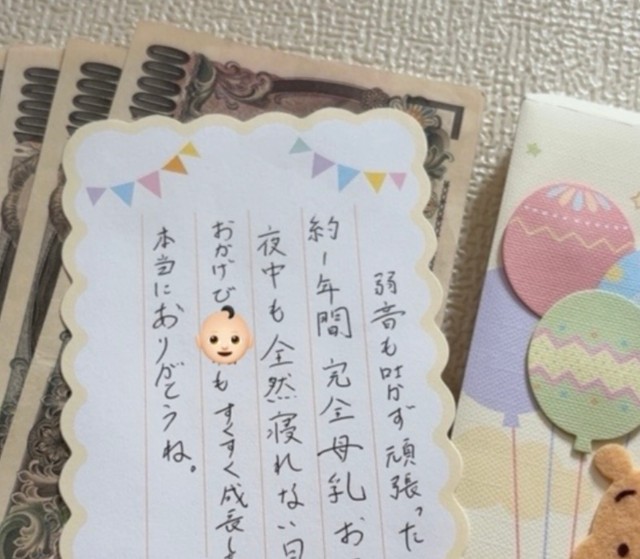 弱音も吐かず頑張った
約1年間 完全母乳 お
夜中も全然寝れない日
おかげで👶も すくすく成長し
本当にありがとうね。